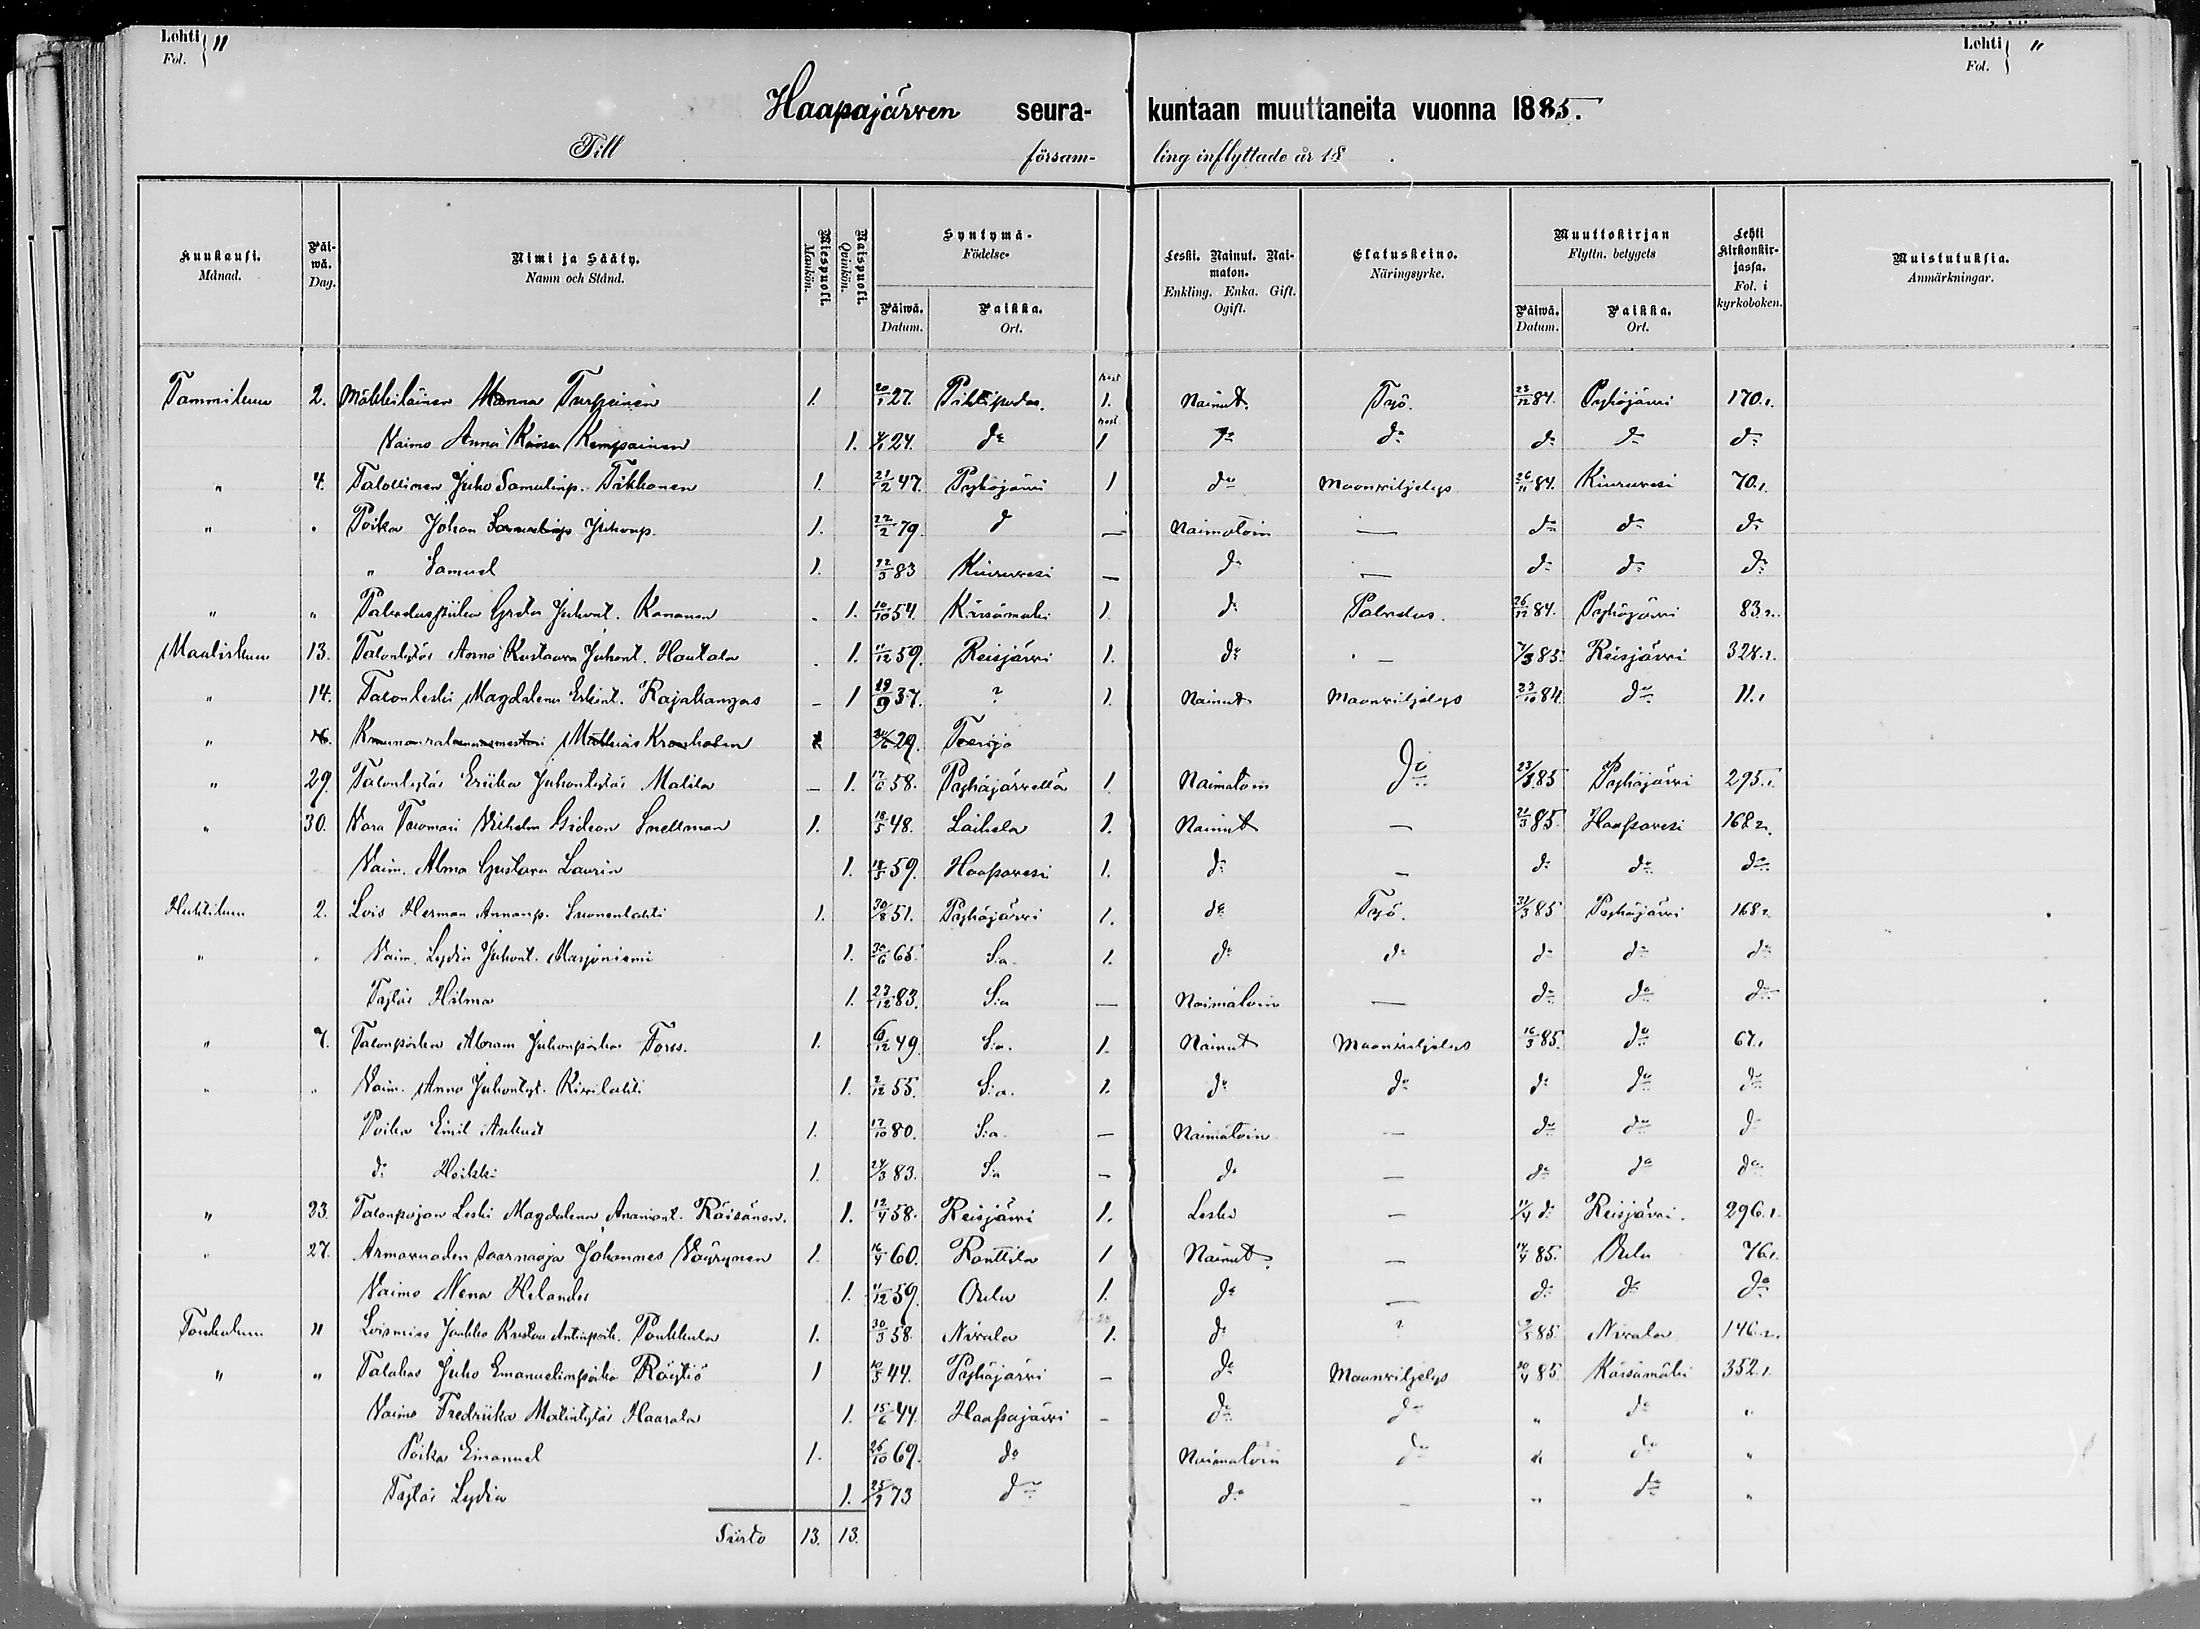 Lehti 11 Lehti "
Fol. Fol.
Haapajärven seura- kuntaan muuttaneita vuonna 1885.
Till församling inflyttade år 18 .
Kuukausi. Månad. Päiwä. Dag. Nimi ja Sääty. Namn och Stånd. Miespuoli. Mankön. Naispuoli. Qvinkön. Syntymä- Födelse- Päiwä. Datum. Paikka. Ort. Leski. Nainut. Naimaton. Enkling. Enka. Gift. Ogift. Elatuskeino. Näringsyrke. Muuttokirjan Flyttn. betygets Päiwä. Datum. Paikka. Ort. Lehti kirkonkirjassa. Fol. i kyrkoboken. Muistutuksia. Anmärkningar.
Tammikuu 2. Mökkiläinen Manna Turpeinen 1. 20/1 27. Pihtipudas. 1. Nainut. Työ. 23/12 84. Pyhäjärvi 170.1.
Vaimo Anna Kaisa Kemppainen 1. 4/1 24. do 1 do do do do do
" 4. Talollinen Juho Samulinp. Tikkanen 1. 21/2 47. Pyhäjärvi 1 do Maanviljelys 26/11 84. Kiuruvesi 70.1.
" " Poika Johan Juhonp. 1. 22/2 79. d — Naimatoin — do do do
" Samuel 1. 22/3 83 Kiuruvesi — do — do do do
" " Palveluspiika Greta Juhont. Kananen 1. 10/10 54. Kärsämäki 1. do Palvelus. 26/12 84. Pyhäjärvi 83.2.
Maaliskuu 13. Talontytär Anna Kustaava Juhont. Hautala 1. 11/12 59. Reisjärvi 1. do — 7/3 85. Reisjärvi 328.1.
" 14. Talonleski Magdalena Erkint. Rajakangas – 1 19/9 37. ? 1. Nainut Maanviljelys 23/10 84. do 11.1
" 16. Mathias 29. Teerijo
" 29. Talontytär Eriika Juhontytär Malila — 1. 17/6 58. Pyhäjärvellä 1. Naimatoin do 23/3 85 Pyhäjärvi 295.1.
" 30. Vara Tuomari Vilhelm Gideon Snellman 1. 18/5 48. Laihela 1. Nainut — 21/3 85. Haapavesi 168.2.
Vaim. Alma Gustava Laurin 1. 18/5 59. Haapavesi 1. do — do do do
Huhtikuu 2. Lois Herman Annanp. Suonenlahti 1. 30/8 51. Pyhäjärvi 1. do Työ. 31/3 85 Pyhäjärvi 168.2
" " Vaim. Lydia Juhont. Marjoniemi 1. 30/6 65. S:a. 1. do do do do do
Tytär Hilma 1. 23/12 83. S:a — Naimatoin — do do do
" 7. Talonpoika Abram Juhonpoika Forss. 1. 6/12 49. S:a. 1. Nainut Maanviljelys 16/3 85. do 67.1
" " Vaim. Anna Juhontyt. Kivilahti 1. 2/12 55. S:a. 1. do do do do do
Poika Emil Aukusti 1. 17/10 80. S:a — Naimatoin — do do d
do Heikki 1. 24/3 83. S:a — do — do do do
" 23. Talonpojan Leski Magdalena Araniant. Räisänen. 1. 12/4 58. Reisjärvi 1. Leski — 11/4 do Reisjärvi. 296.1.
" 27. Armovuoden saarnaaja Johannes Väyrynen 1. 16/4 60. Ranttila 1 Nainut — 14/4 85. Oulu 76.1.
Vaimo Nena Helander 1. 11/12 59. Oulu 1. do — do do do
Toukokuu " Loismies Jaakko Kustaa Antinpoik. Poukkula 1. 30/3 58. Nivala 1. do ? 2/5 85. Nivala 146.2.
" " Talokas Juho Emanuelinpoika Röytiö 1 10/5 44. Pyhäjärvi — do Maanviljelys 20/4 85 Kärsämäki 352.1.
Vaimo Fredriika Matintytär Haarala 1. 15/6 44. Haapajärvi – do do " do "
Poika Emanuel 1. 26/10 69. do Naimatoin do " do "
Tytär Lydia 1. 25/7 73 do do — " do "
Siirto 13. 13.